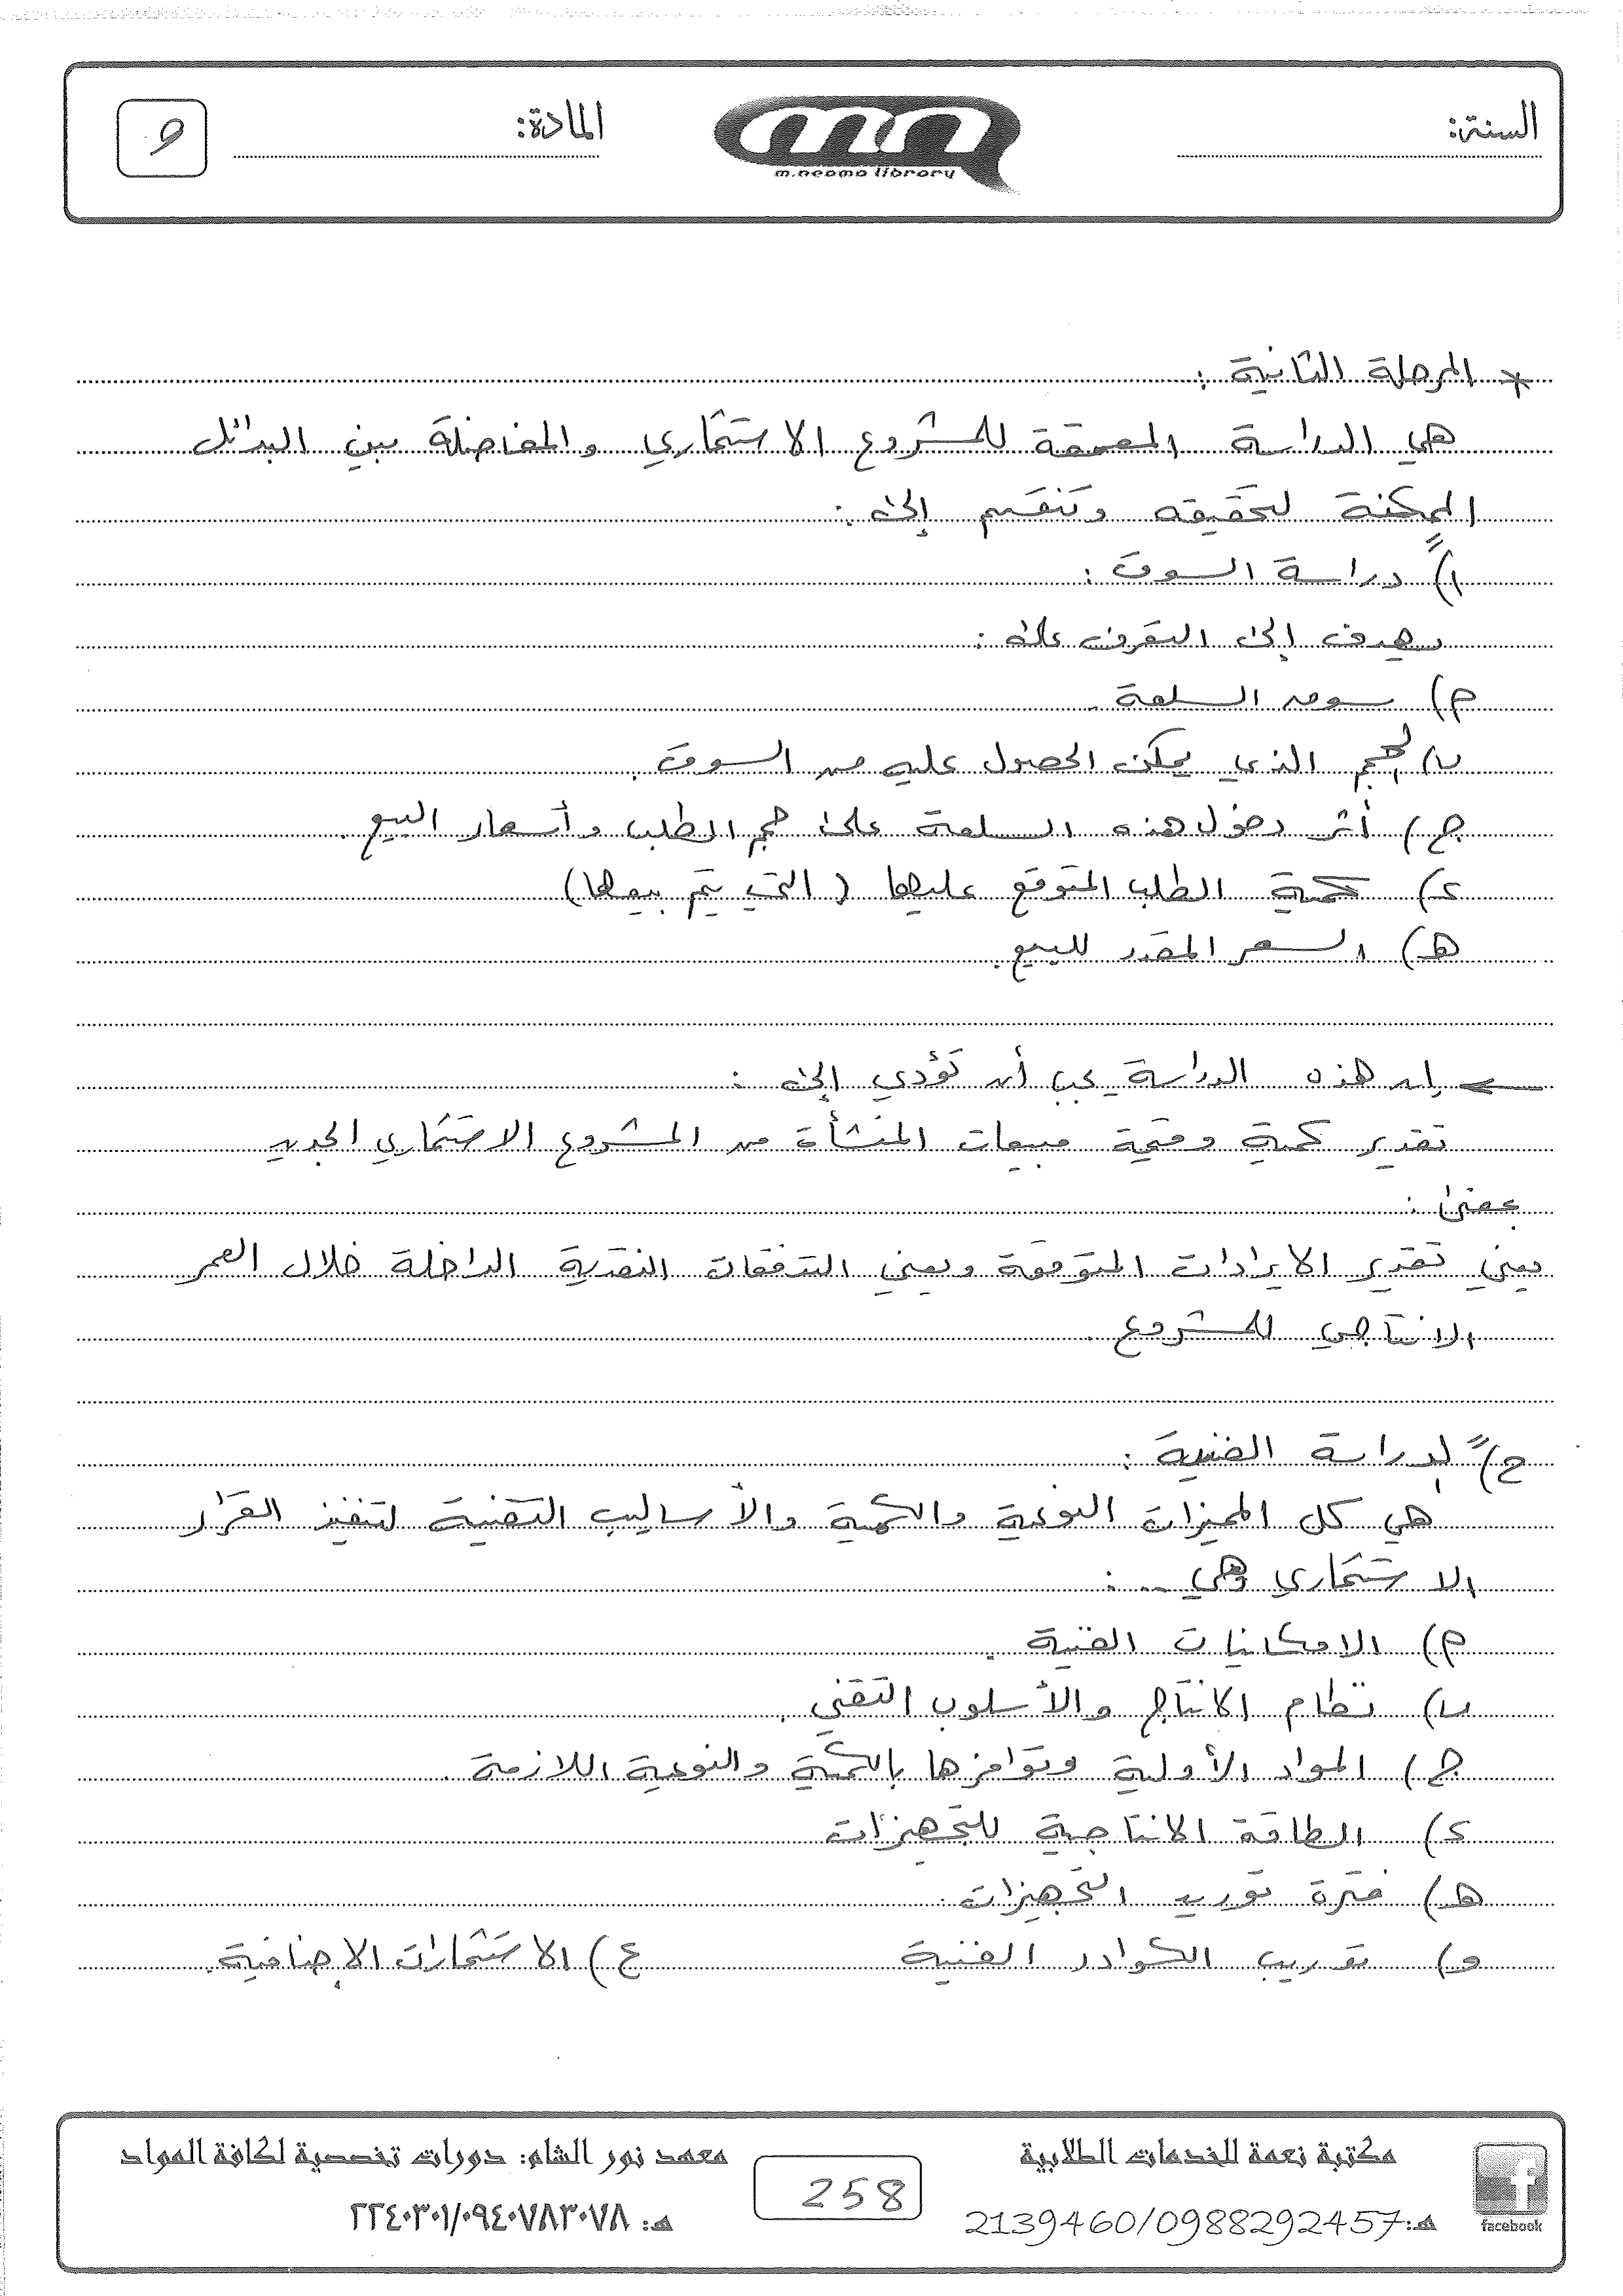 السنة:
m.neama library
المادة:
و
* المرحلة الثانية :
هي الدراسة المعمقة للمشروع الاستثماري والمفاضلة بين البدائل
الممكنة لتحقيقه وتنقسم إلى :
١) دراسة السوق :
يهدف إلى التعرف على :
م) سوق السلعة .
ب) الحجم الذي يمكن الحصول عليه من السوق .
ج) أثر دخول هذه السلعة على حجم الطلب وأسعار البيع .
د) كمية الطلب المتوقع عليها ( التي يتم بيعها)
هـ) السعر المقدر للبيع .
← إن هذه الدراسة يجب أن تؤدي إلى :
تقدير كمية وقيمة مبيعات المنشأة من المشروع الاستثماري الجديد
بمعنى :
يعني تقدير الايرادات المتوقعة ويعني التدفقات النقدية الداخلة خلال العمر
الانتاجي للمشروع .
ح) الدراسة الفنية :
هي كل المميزات النوعية والكمية والأساليب التقنية لتنفيذ القرار
الاستثماري وهي .. :
م) الامكانيات الفنية .
ب) نظام الانتاج والأسلوب التقني .
ج) المواد الأولية وتوافرها بالكمية والنوعية اللازمة .
د) الطاقة الانتاجية للتجهيزات
هـ) فترة توريد التجهيزات .
و) تدريب الكوادر الفنية ع) الاستثمارات الإضافية .
مكتبة نعمة للخدمات الطلابية
هـ: 2139460/0988292457
facebook
258
معهد نور الشام: دورات تخصصية لكافة المواد
هـ: ٢٢٤٠٣٠١/٠٩٤٠٧٨٣٠٧٨